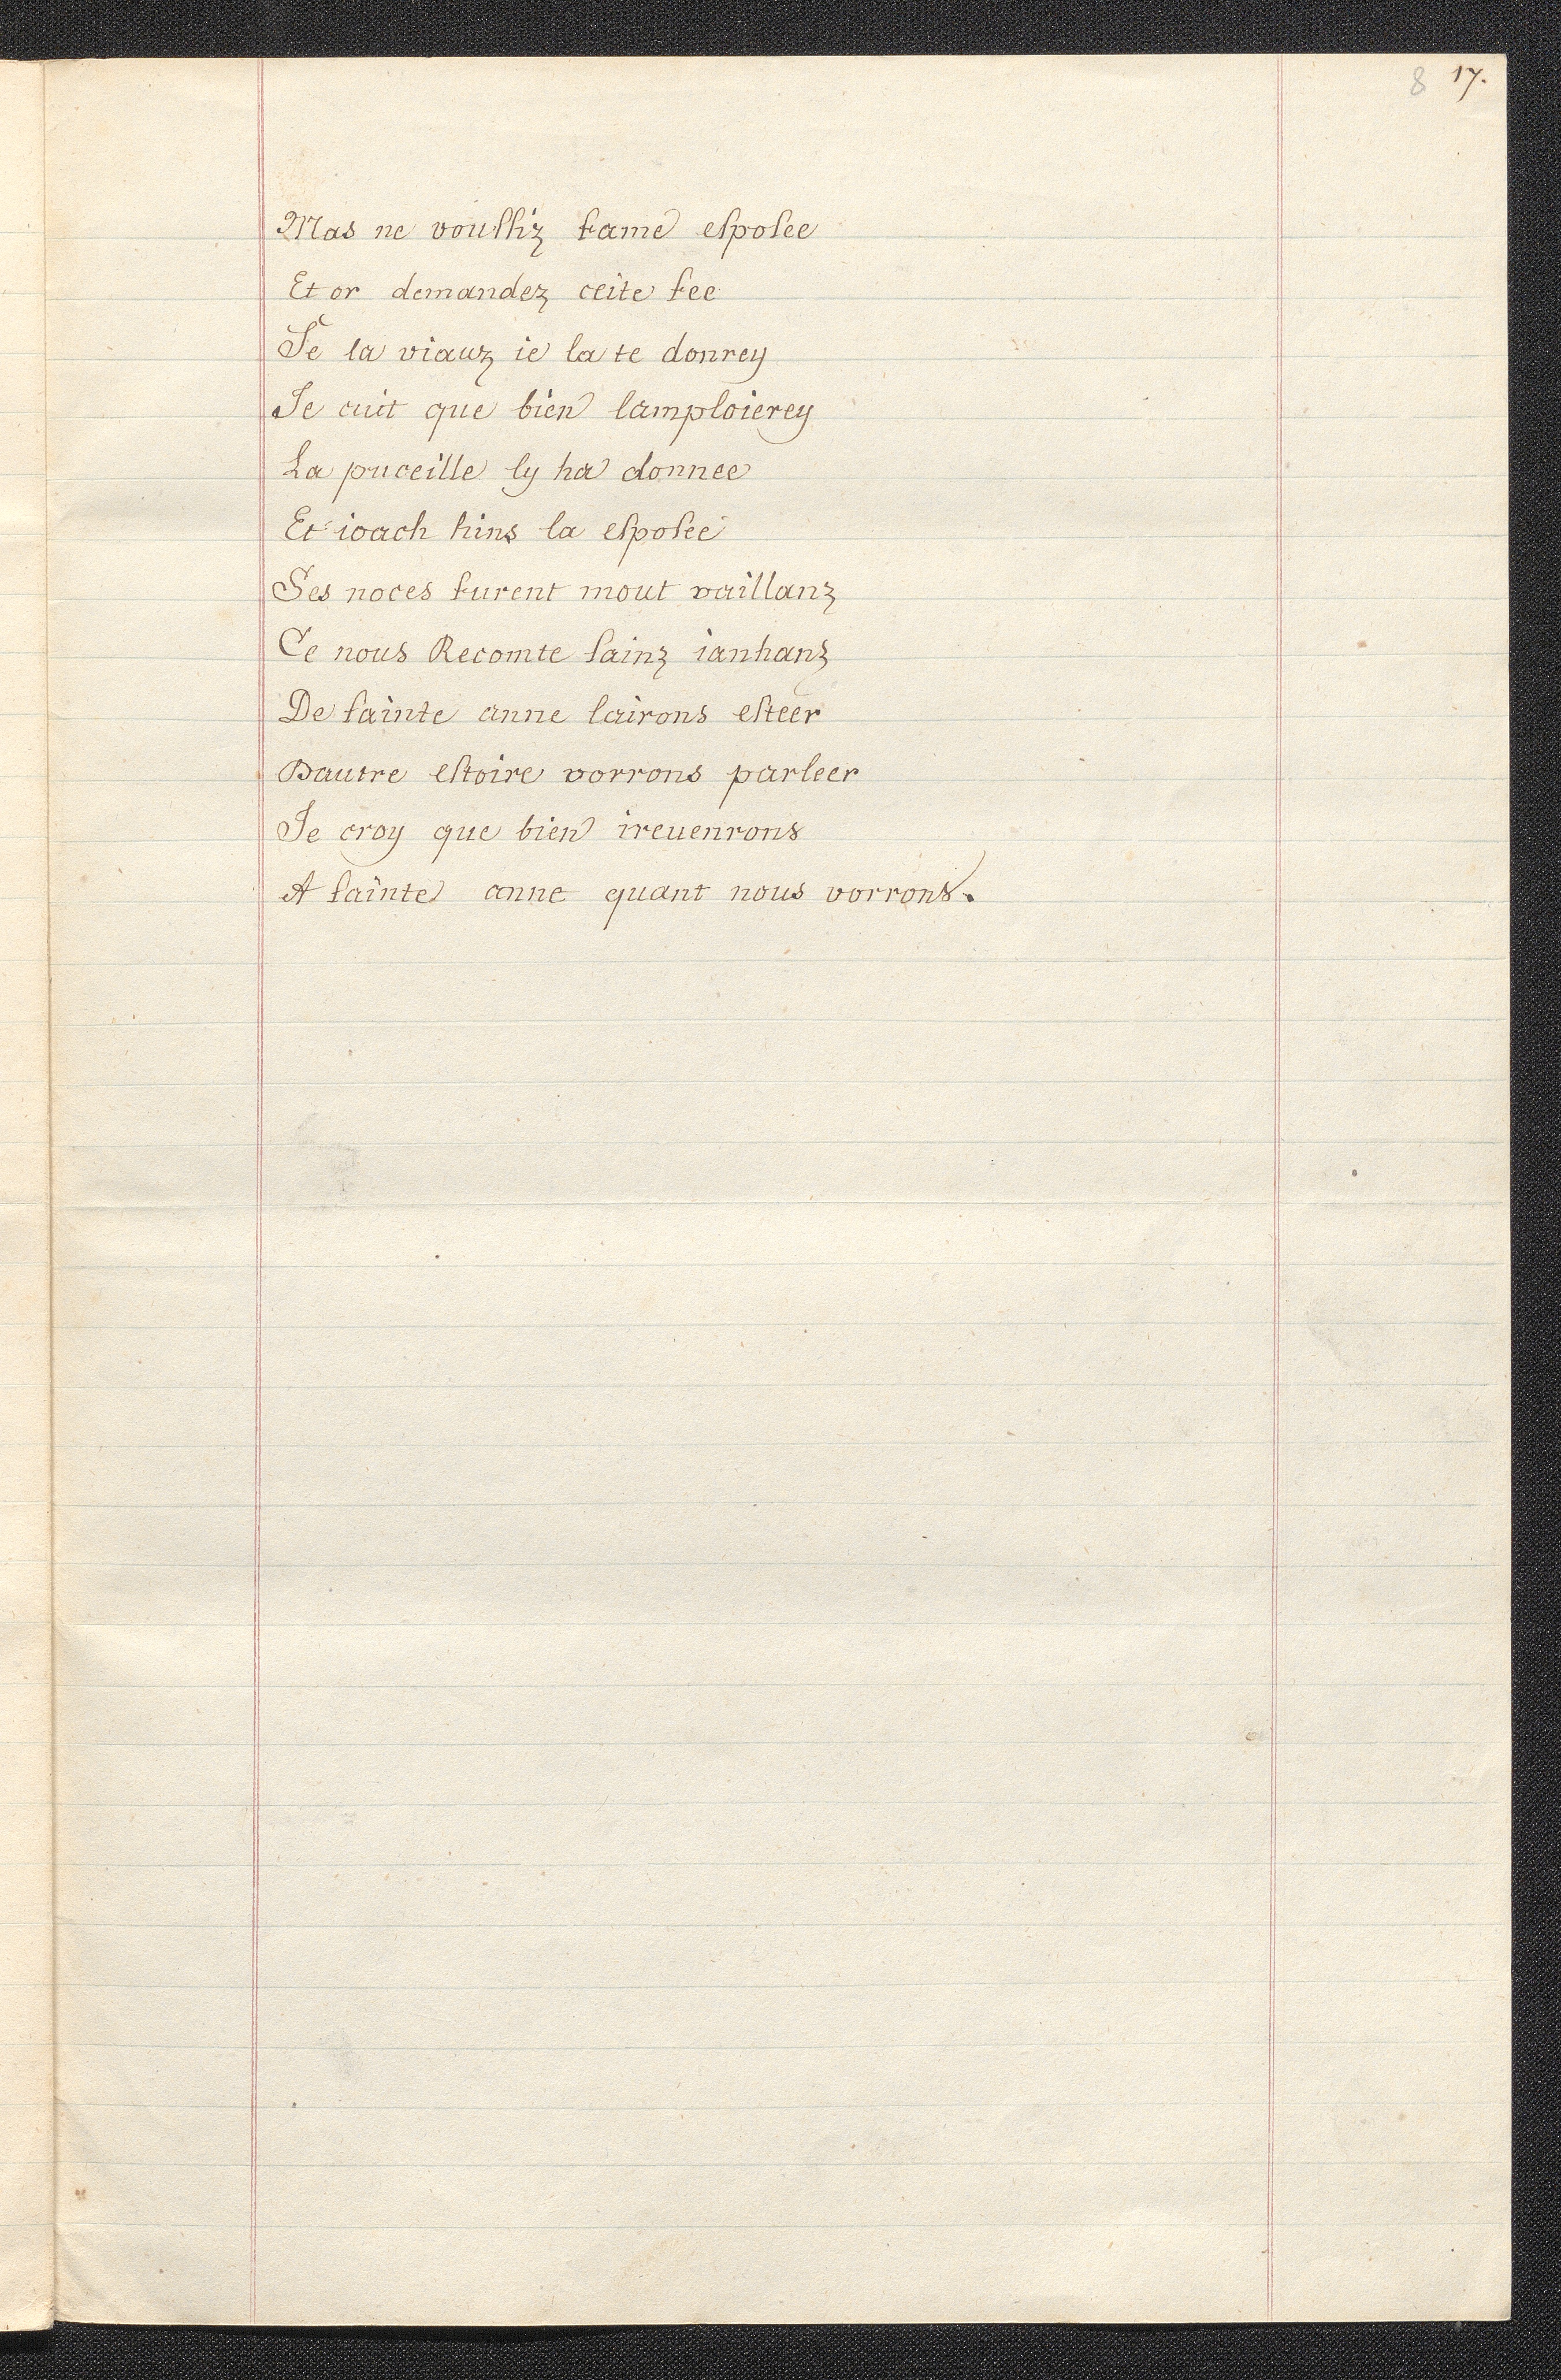 8 17.
Mas ne vouſſiz fame eſpoſee
Et or demandez ceite fee
Se la viauz ie la te donrey
Je cuit que bien lamploierey
La puceille ly ha donnee
Et ioach hins la eſpoſee
Ses noces furent mout vaillanz
Ce nous Recomte ſainz ianhanz
De ſainte anne lairons eſteer
Dautre eſtoire vorrons parleer
Je croy que bien ireuenrons
A ſainte anne quant nous vorrons.